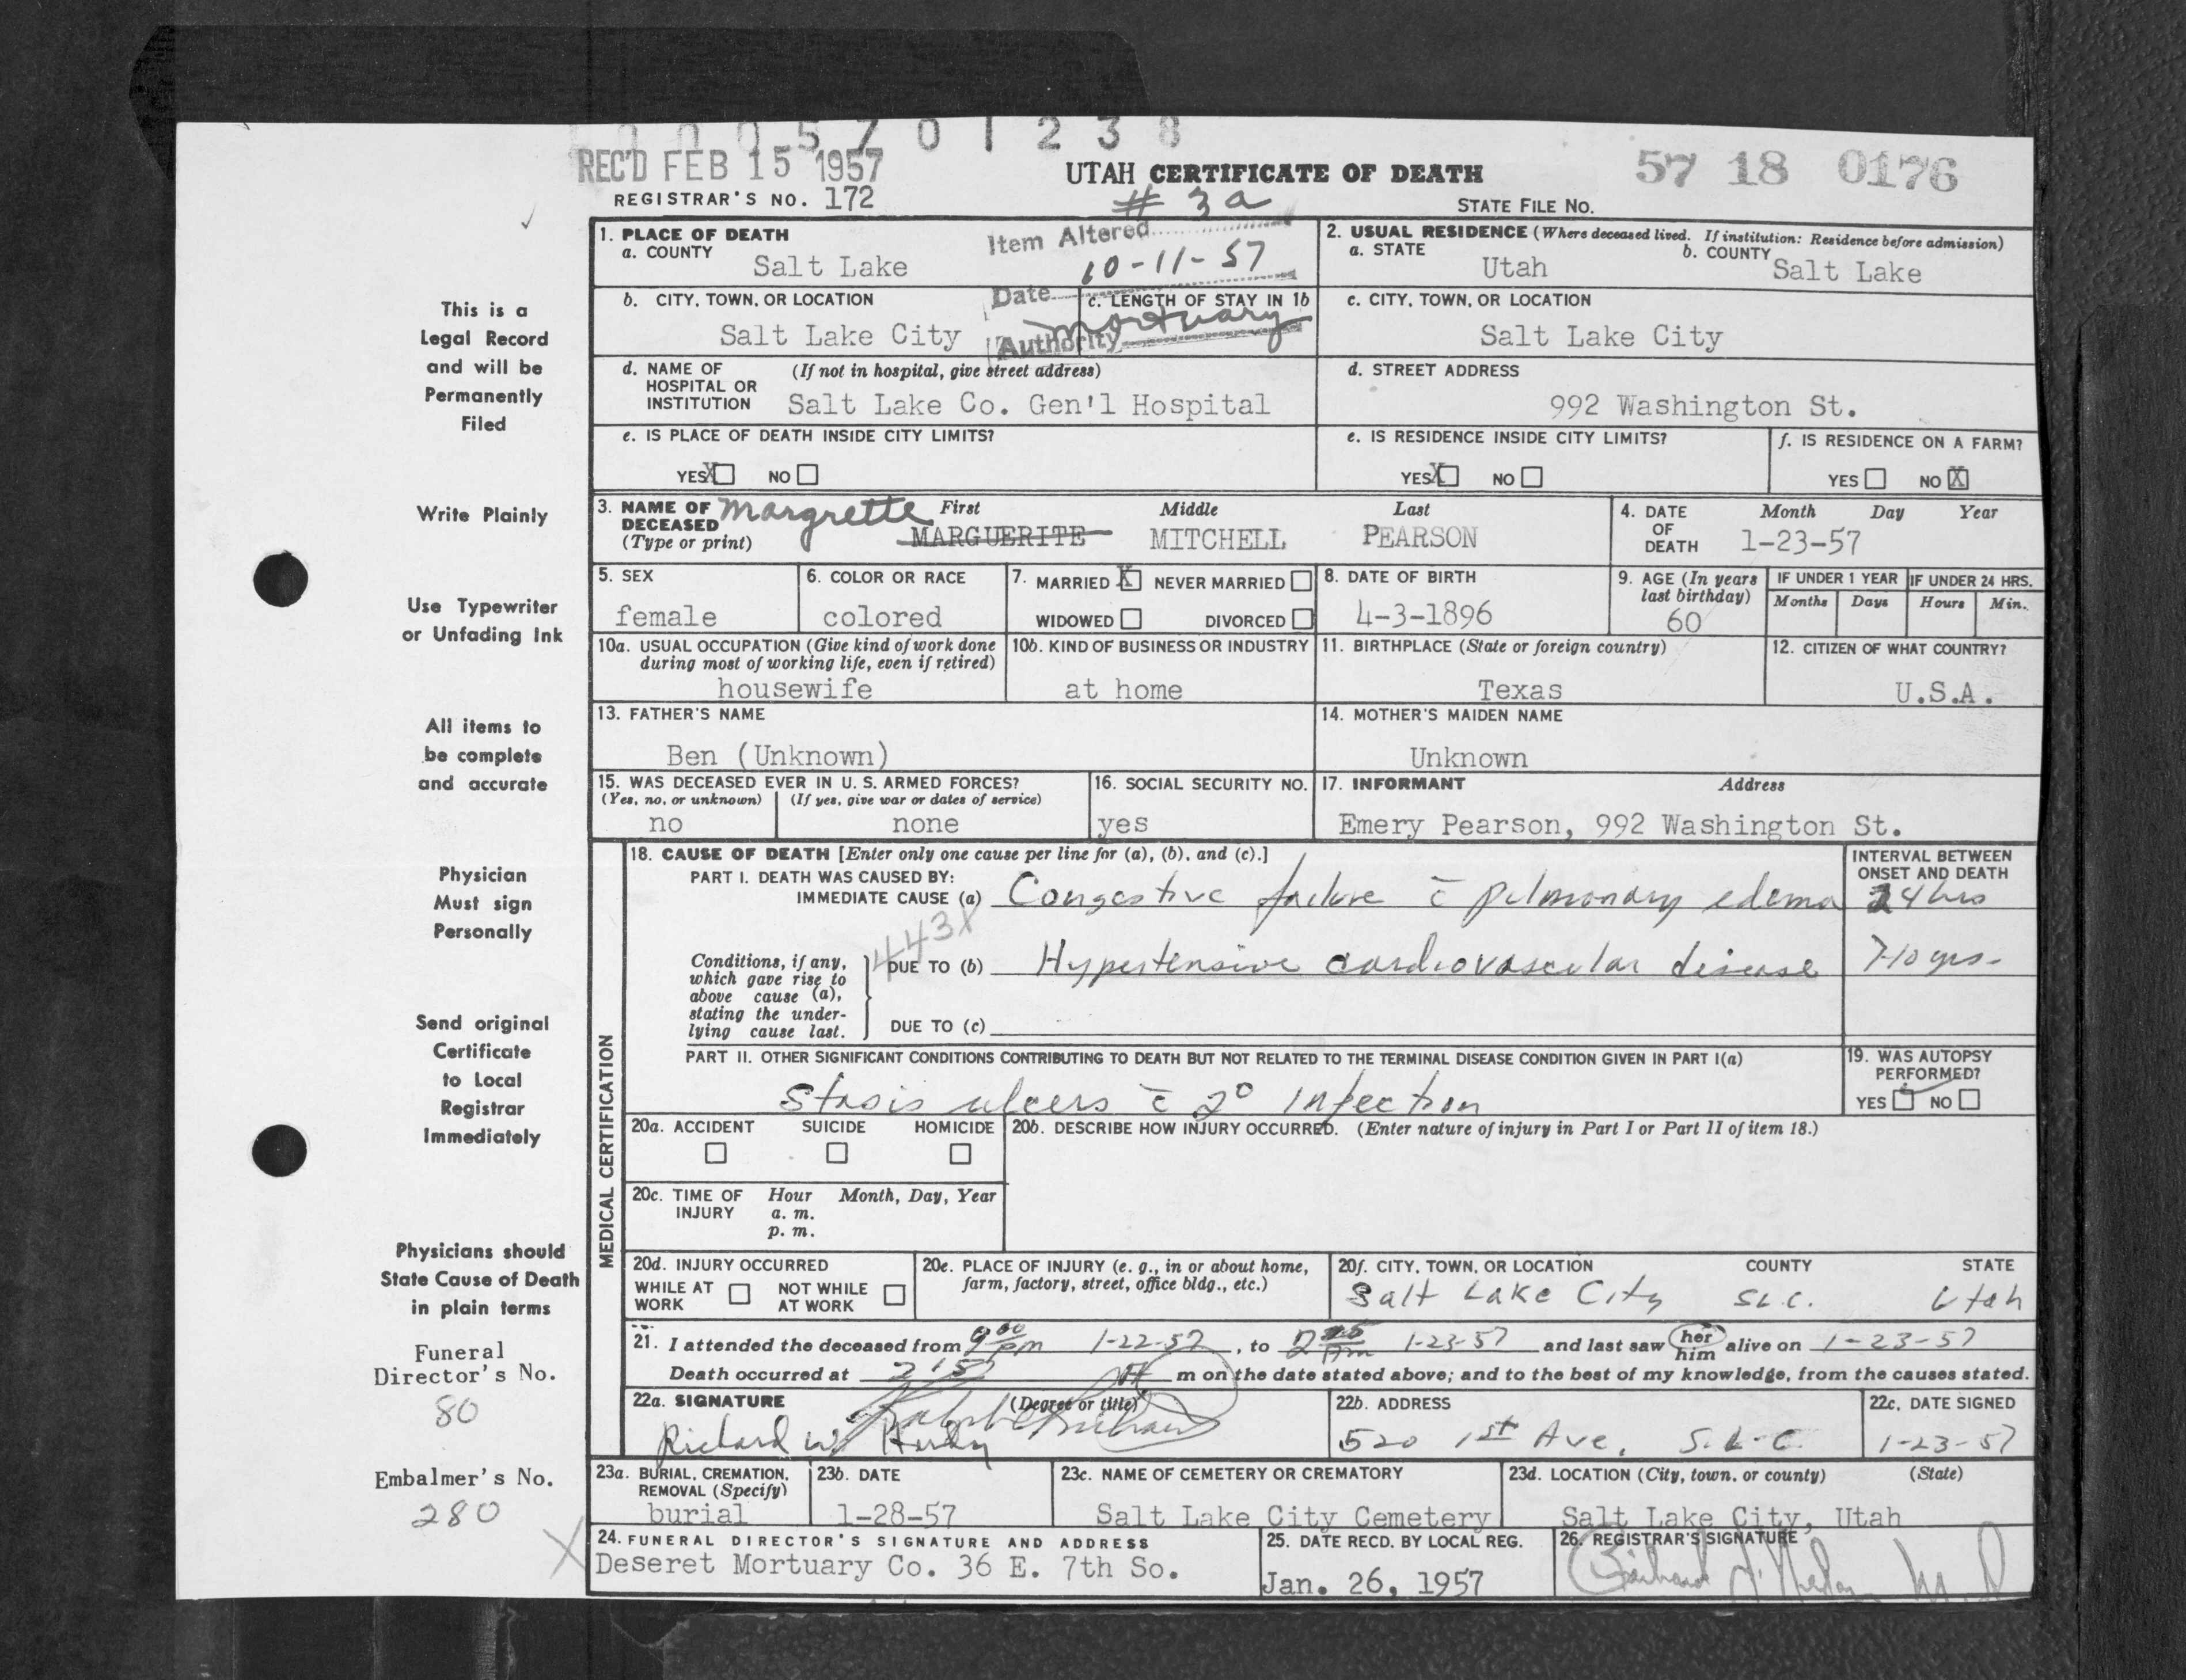 0 0 0 5 7 0 1 2 3 8
REC'D FEB 15 1957
UTAH CERTIFICATE OF DEATH
57 18 0176
REGISTRAR'S NO. 172
# 3a
STATE FILE NO.
1. PLACE OF DEATH
a. COUNTY
Salt Lake
Item Altered
10-11-57
Date
Authority mortuary
2. USUAL RESIDENCE (Where deceased lived. If institution: Residence before admission)
a. STATE
Utah
b. COUNTY
Salt Lake
b. CITY, TOWN, OR LOCATION
Salt Lake City
c. LENGTH OF STAY IN 1b
c. CITY, TOWN, OR LOCATION
Salt Lake City
d. NAME OF HOSPITAL OR INSTITUTION
(If not in hospital, give street address)
Salt Lake Co. Gen'l Hospital
d. STREET ADDRESS
992 Washington St.
e. IS PLACE OF DEATH INSIDE CITY LIMITS?
YES X NO
e. IS RESIDENCE INSIDE CITY LIMITS?
YES X NO
f. IS RESIDENCE ON A FARM?
YES NO X
3. NAME OF DECEASED (Type or print)
First Middle Last
Margrette
MARGUERITE MITCHELL PEARSON
4. DATE OF DEATH
Month Day Year
1-23-57
5. SEX
female
6. COLOR OR RACE
colored
7. MARRIED X NEVER MARRIED
WIDOWED DIVORCED
8. DATE OF BIRTH
4-3-1896
9. AGE (In years last birthday)
60
IF UNDER 1 YEAR
Months Days
IF UNDER 24 HRS.
Hours Min.
10a. USUAL OCCUPATION (Give kind of work done during most of working life, even if retired)
housewife
10b. KIND OF BUSINESS OR INDUSTRY
at home
11. BIRTHPLACE (State or foreign country)
Texas
12. CITIZEN OF WHAT COUNTRY?
U.S.A.
13. FATHER'S NAME
Ben (Unknown)
14. MOTHER'S MAIDEN NAME
Unknown
15. WAS DECEASED EVER IN U. S. ARMED FORCES?
(Yes, no, or unknown) (If yes, give war or dates of service)
no none
16. SOCIAL SECURITY NO.
yes
17. INFORMANT Address
Emery Pearson, 992 Washington St.
MEDICAL CERTIFICATION
18. CAUSE OF DEATH [Enter only one cause per line for (a), (b), and (c).]
INTERVAL BETWEEN ONSET AND DEATH
PART I. DEATH WAS CAUSED BY:
IMMEDIATE CAUSE (a) Congestive failure c̄ pulmonary edema 24 hrs
443X
Conditions, if any, which gave rise to above cause (a), stating the underlying cause last.
DUE TO (b) Hypertensive cardiovascular disease >10 yrs.
DUE TO (c)
PART II. OTHER SIGNIFICANT CONDITIONS CONTRIBUTING TO DEATH BUT NOT RELATED TO THE TERMINAL DISEASE CONDITION GIVEN IN PART I(a)
Stasis ulcers c̄ 2° Infection
19. WAS AUTOPSY PERFORMED?
YES ✓ NO
20a. ACCIDENT SUICIDE HOMICIDE
20b. DESCRIBE HOW INJURY OCCURRED. (Enter nature of injury in Part I or Part II of item 18.)
20c. TIME OF INJURY
Hour Month, Day, Year
a. m.
p. m.
20d. INJURY OCCURRED
WHILE AT WORK NOT WHILE AT WORK
20e. PLACE OF INJURY (e. g., in or about home, farm, factory, street, office bldg., etc.)
20f. CITY, TOWN, OR LOCATION COUNTY STATE
Salt Lake City SLC. Utah
21. I attended the deceased from 9 00 pm 1-22-57, to 2 15 Am 1-23-57 and last saw her him alive on 1-23-57
Death occurred at 2 15 A m on the date stated above; and to the best of my knowledge, from the causes stated.
22a. SIGNATURE (Degree or title)
Richard W. Hardy
22b. ADDRESS
520 1st Ave. S.L.C.
22c. DATE SIGNED
1-23-57
23a. BURIAL, CREMATION, REMOVAL (Specify)
burial
23b. DATE
1-28-57
23c. NAME OF CEMETERY OR CREMATORY
Salt Lake City Cemetery
23d. LOCATION (City, town, or county) (State)
Salt Lake City, Utah
24. FUNERAL DIRECTOR'S SIGNATURE AND ADDRESS
Deseret Mortuary Co. 36 E. 7th So.
25. DATE RECD. BY LOCAL REG.
Jan. 26, 1957
26. REGISTRAR'S SIGNATURE
This is a
Legal Record
and will be
Permanently
Filed
Write Plainly
Use Typewriter
or Unfading Ink
All items to
be complete
and accurate
Physician
Must sign
Personally
Send original
Certificate
to Local
Registrar
Immediately
Physicians should
State Cause of Death
in plain terms
Funeral
Director's No.
80
Embalmer's No.
280